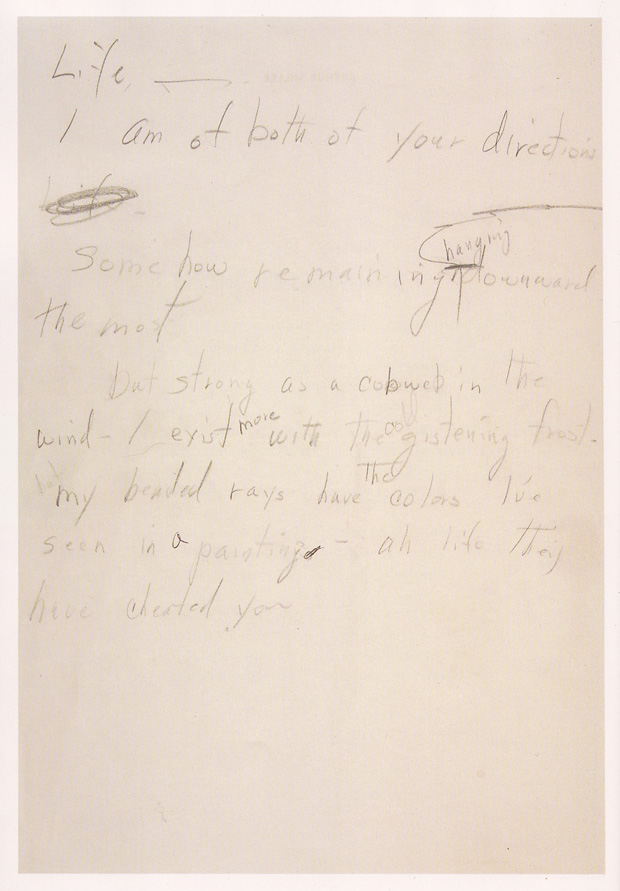 Life, —
I am of both of your directions
Life -
Somehow remaining hanging downward
the most
But strong as a cobweb in the
wind - I exist more with the cold gistening frost.
But my beaded rays have the colors I've
seen in a painting - ah life they
have cheated you